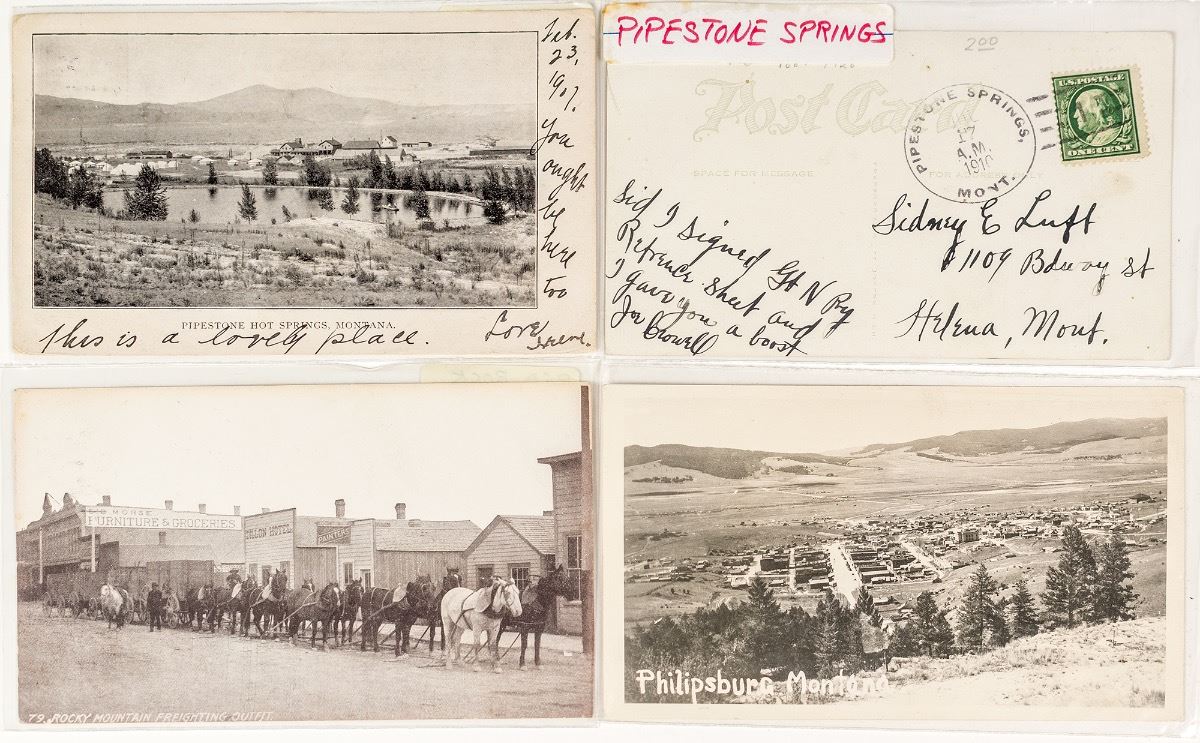 Feb.
23,
1907.
You
ought
be
here
too
PIPESTONE HOT SPRINGS, MONTANA.
this is a lovely place.
Love
PIPESTONE SPRINGS
200
Post Card
SPACE FOR MESSAGE
FOR ADDRESS ONLY
PIPESTONE SPRINGS,
17
A.M.
1910
MONT.
U.S. POSTAGE
ONE CENT
Sid I signed Gt N Ry
Refrence sheet and
I gave you a boost
Joe Crowell
Sidney E Luft
1109 Bdway St
Helena, Mont.
MORSE
FURNITURE & GROCERIES
DILLON HOTEL
PAINTER
79. ROCKY MOUNTAIN FREIGHTING OUTFIT.
Philipsburg Montana